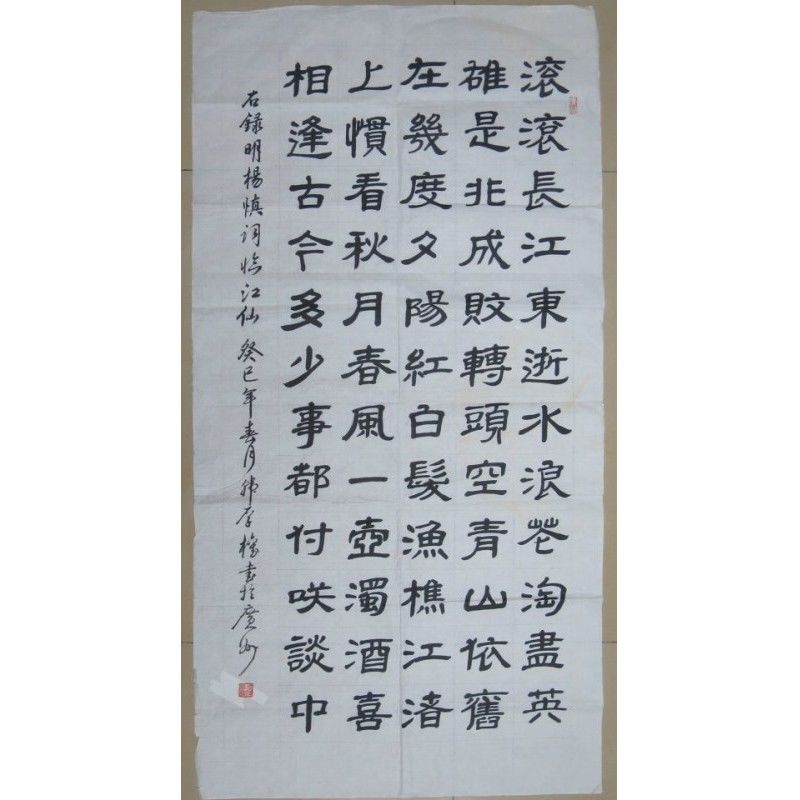 滾滾長江東逝水浪花淘盡英
雄是非成敗轉頭空青山依舊
在幾度夕陽紅白髮漁樵江渚
上慣看秋月春風一壺濁酒喜
相逢古今多少事都付咲談中
右錄明楊慎詞臨江仙 癸巳年春月書於廣州